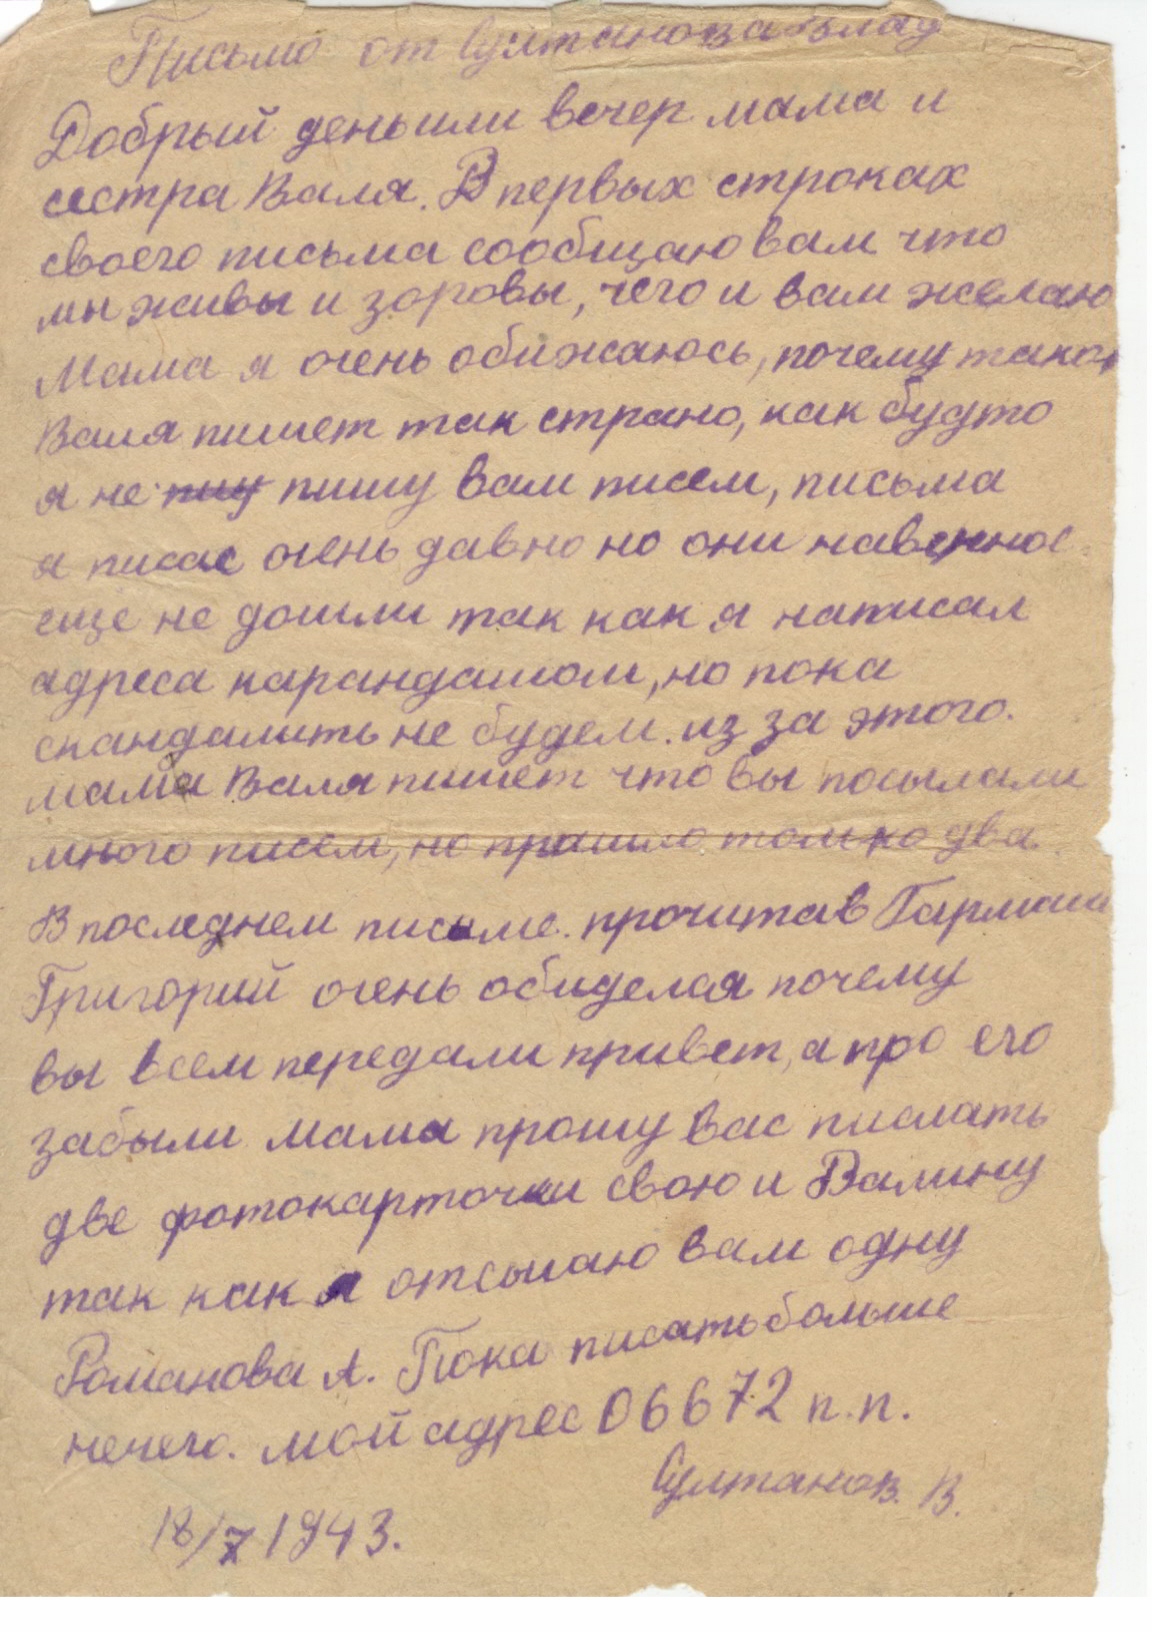 Письмо от Султанова Влад
Добрый день или вечер мама и
сестра Валя. В первых строках
своего письма сообщаю вам что
мы живы и зоровы, чего и вам желаю
Мама я очень обижаюсь, почему такое
Валя пишет так страно, как будто
я не пиу пишу вам писем, письма
я писал очень давно но они навенное
еще не дошли так как я написал
адреса карандашом, но пока
скандалить не будем. из за этого.
мама Валя пишет что вы посылали
много писем, но пришло только два.
В последнем письме. прочитав Гармаш
Григорий очень обиделая почему
вы всем передали привет, а про его
забыли мама прошу вас писмать
две фотокарточки свою и Валину
так как я отсылаю вам одну
Романова А. Пока писать больше
нечего. мой адрес 06672 п.п.
Султанов. В.
18/7 1943.